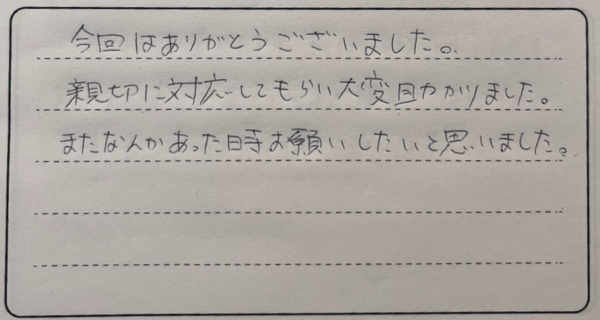 今回はありがとうございました。
親切に対応してもらい大変助かりました。
またなんかあった時お願いしたいと思いました。